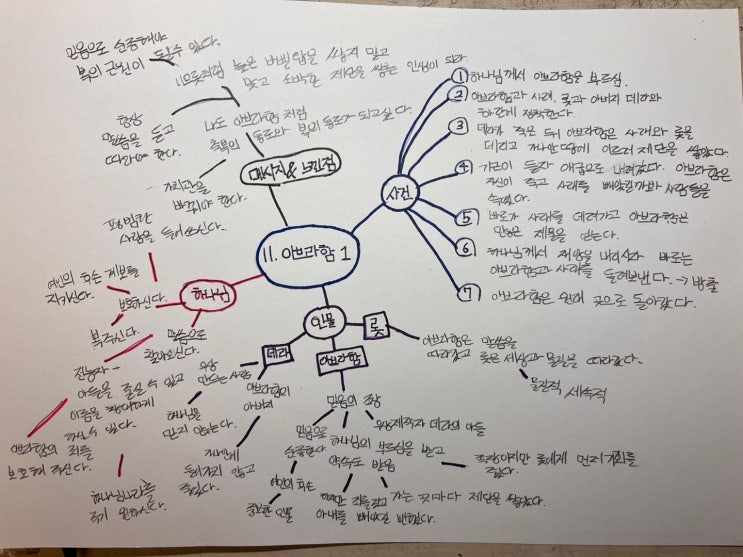 믿음으로 순종해야
복의 근원이 될 수 있다.
니므롯처럼 높은 바벨탑을 쌓지 말고
맞고 소박한 제단을 쌓는 인생이 되라
항상
말씀을 듣고
따라야 한다.
나도 아브라함 처럼
축복의 통로와 복의 통로가 되고 싶다.
가치관을
바꿔야 한다.
메시지& 느낀점
11. 아브라함 1
사건
① 하나님께서 아브라함을 부르심.
② 아브라함과 사래, 롯과 아버지 데라와
하란에 정착한다.
③ 데라가 죽은 뒤 아브라함은 사래와 롯을
데리고 가나안 땅에 이르러 제단을 쌓았다.
④ 기근이 들자 애굽으로 내려갔다. 아브라함은
자신이 죽고 사래를 빼앗길까봐 사람들을
속였다.
⑤ 바로가 사래를 데려가고 아브라함은
많은 재물을 얻는다.
⑥ 하나님께서 재앙을 내리시자 바로는
아브라함과 사래를 돌려보낸다. → 방출
⑦ 아브라함은 원래 곳으로 돌아갔다.
하나님
평범한
사람을 들어쓰신다.
여인의 후손 계보를
지키신다.
보호하신다.
부르신다.
말씀으로
찾아오신다.
전능자
아들을 줄 수 있고
이름을 창대하게
하실 수 있다.
아브라함의 죄를
보호해 주신다.
하나님나라를
주기 원하신다.
인물
데라
우상
만드는 사람
하나님을
믿지 않는다.
아브라함의
아버지
가나안에
들어가지 않고
죽었다.
아브라함
믿음의 조상
믿음으로
순종한다
여인의 후손
중요한 인물
하나님의 부르심을 받고
약속도 받음
아내를 빼앗길 뻔했다.
가는 곳마다 제단을 쌓았다.
우상제작자 데라의 아들
롯에게 먼저 기회를
주었다.
롯
아브라함은 말씀을
따라갔고 롯은 세상과 물질을 따라갔다.
물질적 세속적